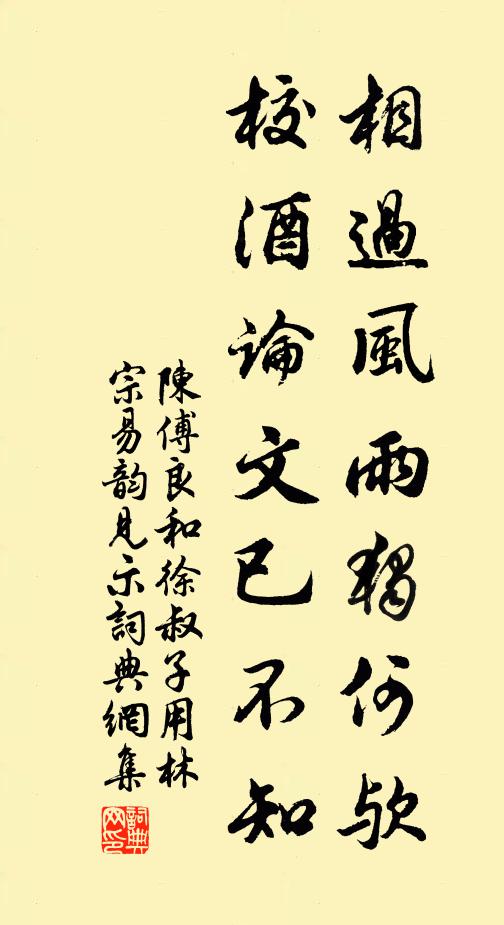 相過風雨獨何歟
校酒論文已不知
陳傅良和徐叔子用林
宗易韵見示詞典網集
詞典網印